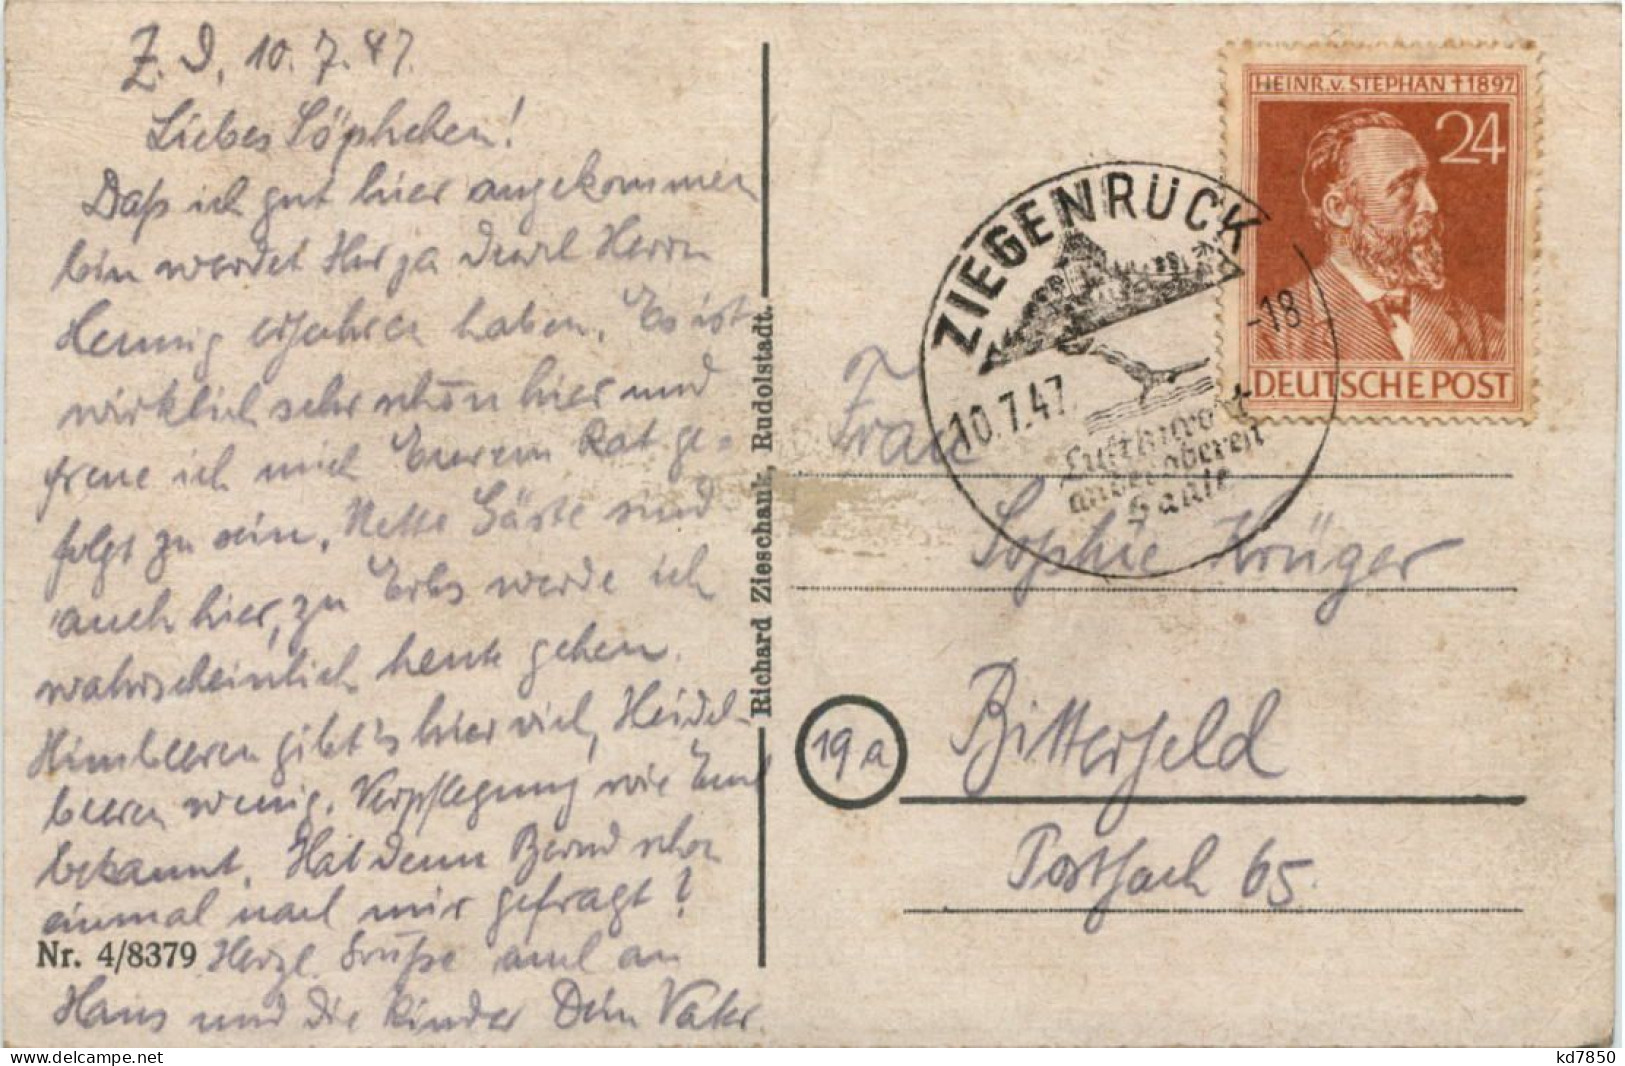 Z. D. 10. 7. 47.
Liebes Söphchen!
Daß ich gut hier angekommen
bin werdet Ihr ja durch Herrn
Hennig erfahren haben. Es ist
wirklich sehr schön hier und
freue ich mich Eurem Rat ge=
folgt zu sein. Nette Gäste sind
auch hier, zu Erbs werde ich
wahrscheinlich heute gehen.
Himbeeren gibt's hier viel, Heidel-
beeren wenig. Verpflegung wie Euch
bekannt. Hat denn Bernd schon
einmal nach mir gefragt?
Nr. 4/8379 Herzl. Grüße auch an
Hans und die Kinder Dein Vater.
Richard Zieschank, Rudolstadt.
HEINR. v. STEPHAN † 1897
24
DEUTSCHE POST
ZIEGENRÜCK
10.7.47.-18
Luftkurort
an der oberen
Saale
Frau
Sophie Krüger
19a
Bitterfeld
Postfach 65.
kd7850